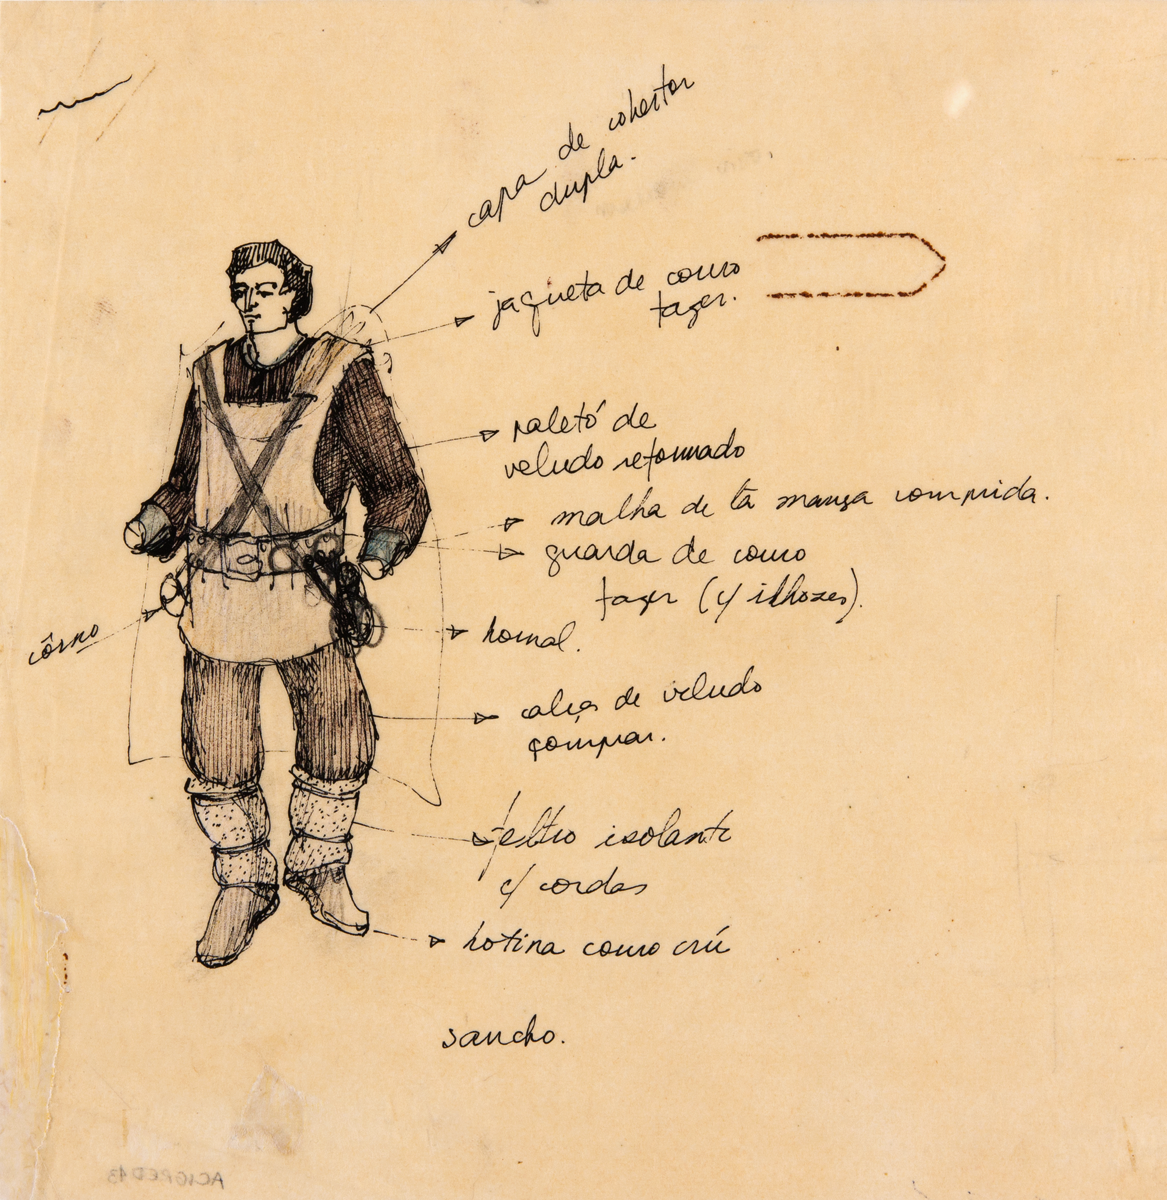 capa de cobertor
dupla.
jaqueta de couro
fazer.
paletó de
veludo reformado
malha de lã manga comprida.
guarda de couro
fazer (c/ ilhozes).
côrno
bornal.
calça de veludo
comprar.
feltro isolante
c/ cordas
botina couro crú
sancho.